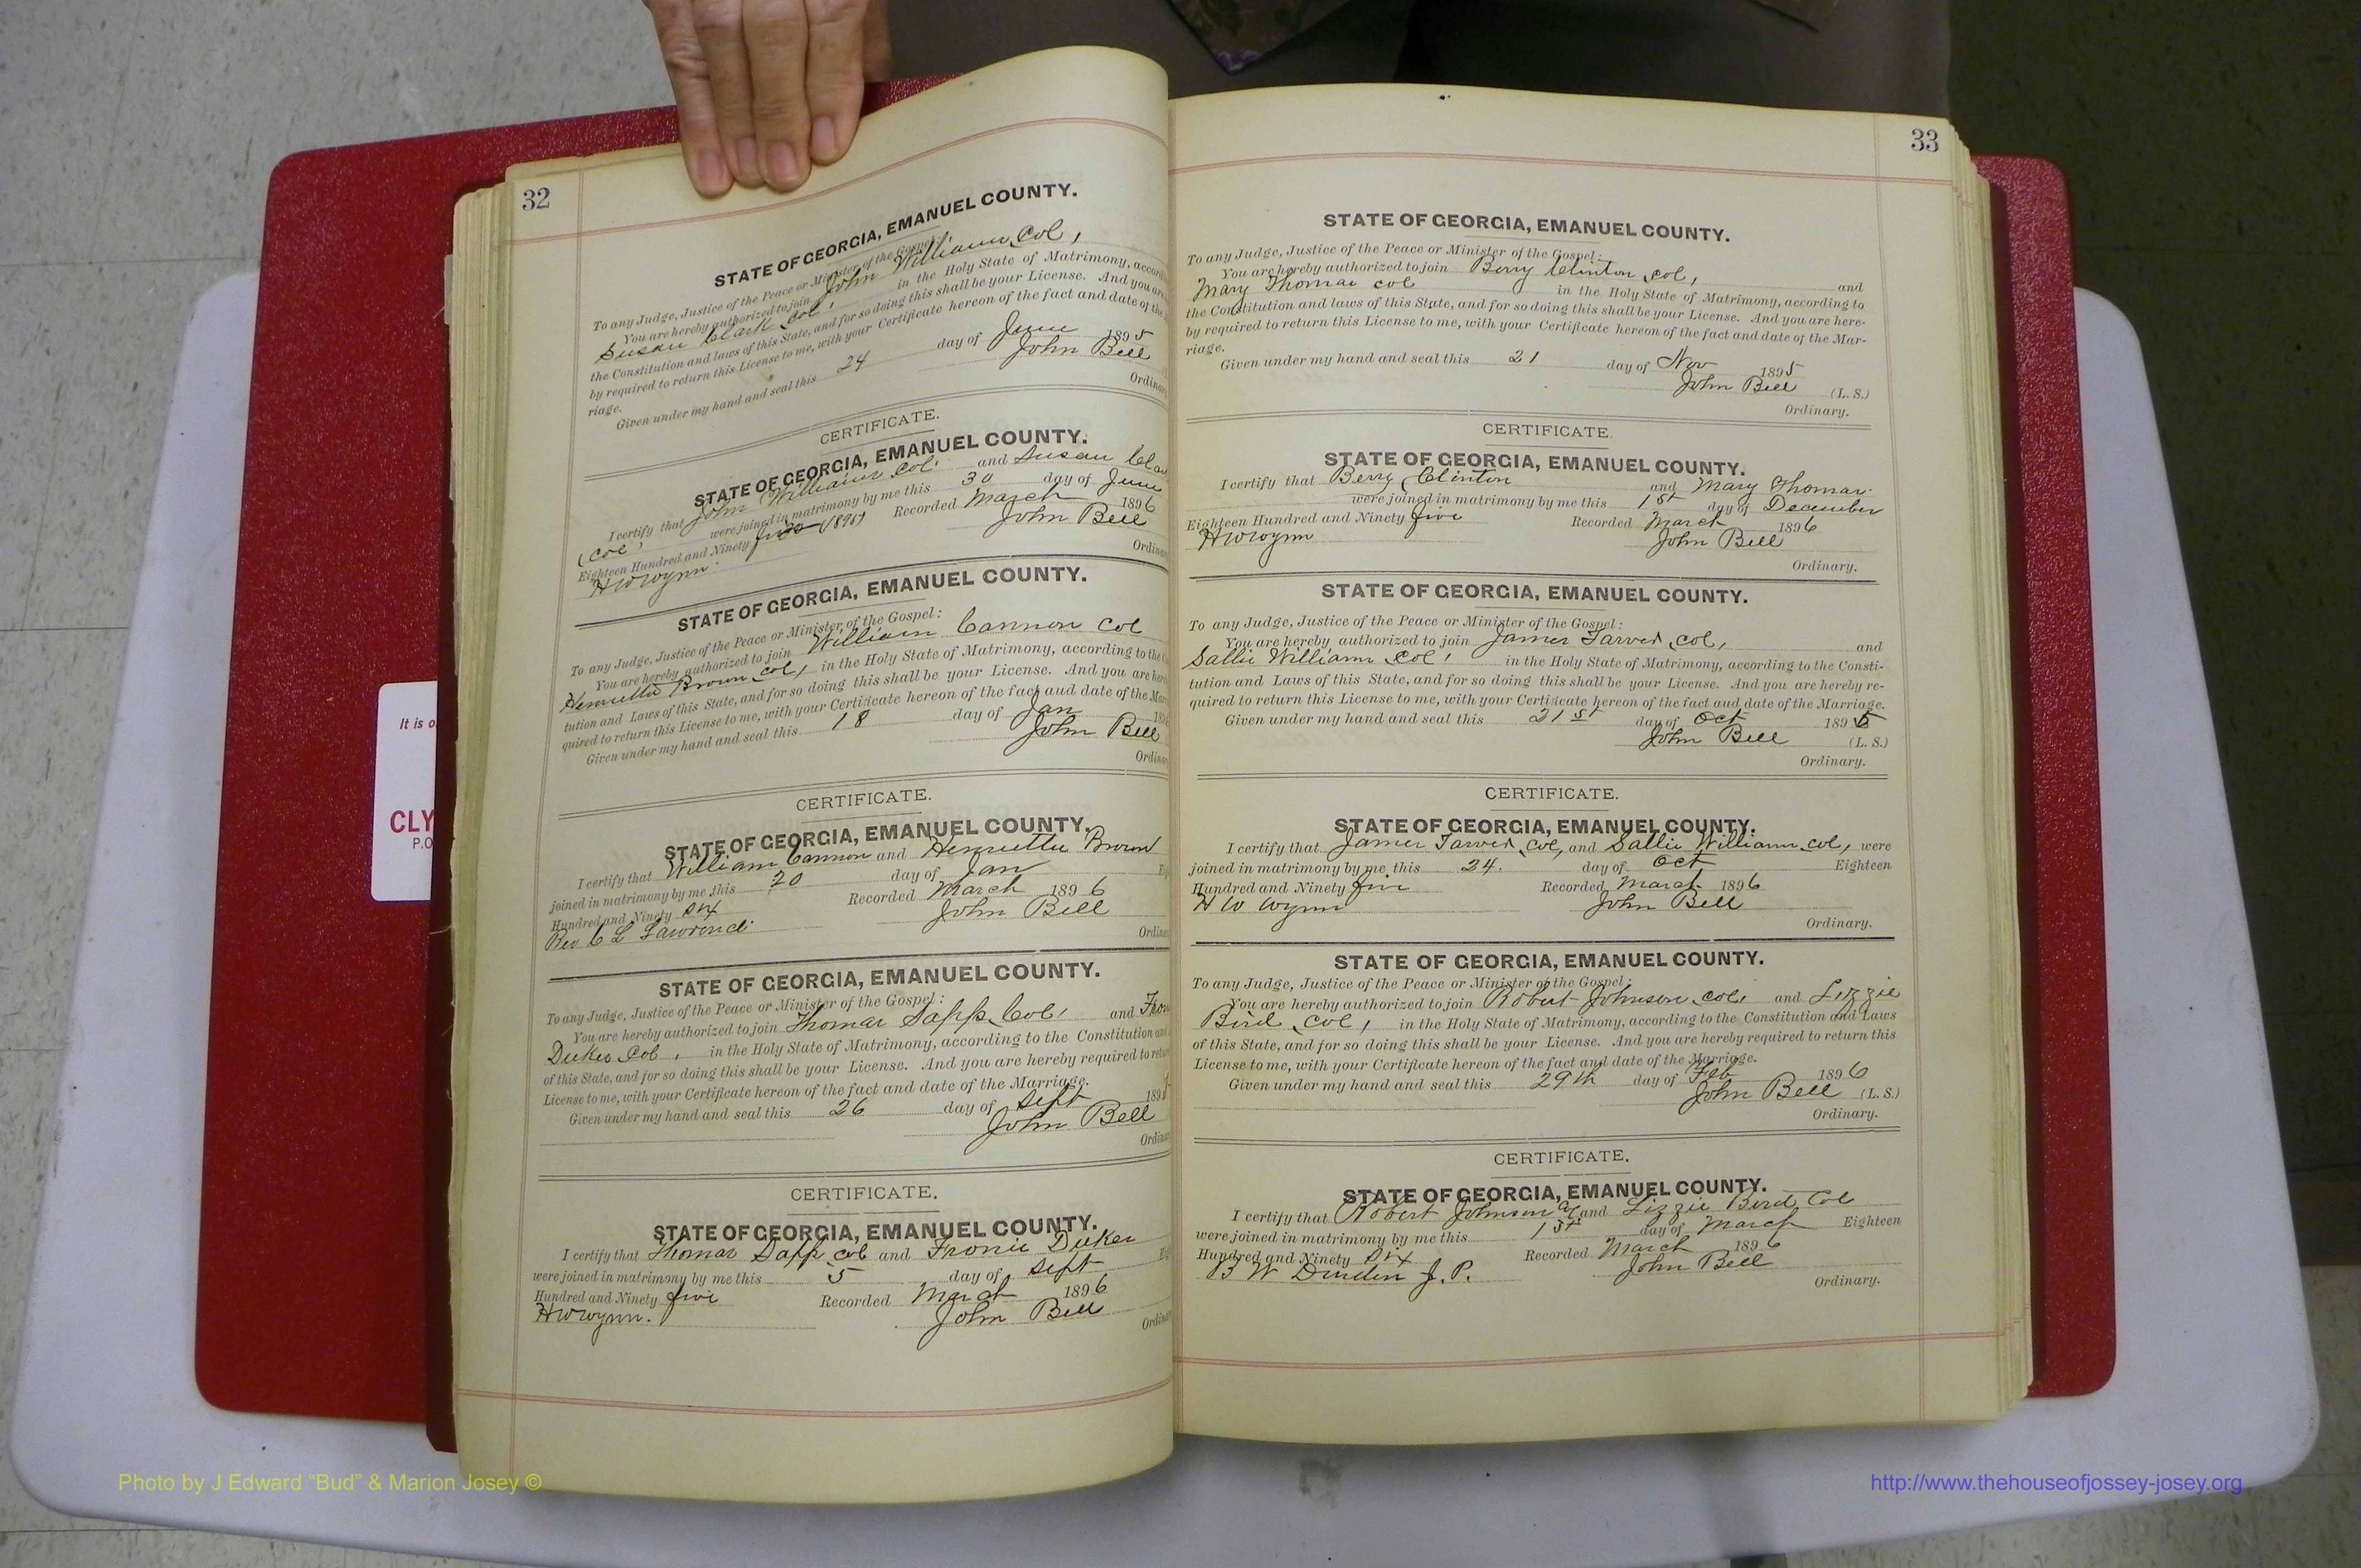 32
STATE OF GEORGIA, EMANUEL COUNTY.
To any Judge, Justice of the Peace or Minister of the Gospel:
You are hereby authorized to join John Williams, col,
Susan Clark, col, in the Holy State of Matrimony, accord
the Constitution and laws of this State, and for so doing this shall be your License. And you are
by required to return this License to me, with your Certificate hereon of the fact and date of the
riage.
Given under my hand and seal this 24 day of June 1895
John Bell
Ordinar
CERTIFICATE.
STATE OF GEORGIA, EMANUEL COUNTY.
I certify that John Williams col. and Susan Cla
(col. were joined in matrimony by me this 30 day of June
Eighteen Hundred and Ninety (1895) Recorded March 1896
H W Wynn. John Bell
Ordina
STATE OF GEORGIA, EMANUEL COUNTY.
To any Judge, Justice of the Peace or Minister of the Gospel:
You are hereby authorized to join William Cannon col
Henrietta Brown, col, in the Holy State of Matrimony, according to the
tution and Laws of this State, and for so doing this shall be your License. And you are her
quired to return this License to me, with your Certificate hereon of the fact and date of the Ma
Given under my hand and seal this 18 day of Jan 18
John Bell
Ordina
CERTIFICATE.
STATE OF GEORGIA, EMANUEL COUNTY.
I certify that William Cannon and Henrietta Brown
joined in matrimony by me this 20 day of Jan
Hundred and Ninety six Recorded March 1896
Rev C L Lawrence John Bell
Ordina
STATE OF GEORGIA, EMANUEL COUNTY.
To any Judge, Justice of the Peace or Minister of the Gospel:
You are hereby authorized to join Thomas Sapp, Col, and Fron
Dukes, Col, in the Holy State of Matrimony, according to the Constitution an
of this State, and for so doing this shall be your License. And you are hereby required to retu
License to me, with your Certificate hereon of the fact and date of the Marriage.
Given under my hand and seal this 26 day of Sept 189
John Bell
Ordina
CERTIFICATE.
STATE OF GEORGIA, EMANUEL COUNTY.
I certify that Thomas Sapp, col and Fronie Dukes
were joined in matrimony by me this 5 day of Sept
Hundred and Ninety five Recorded March 1896
H W Wynn. John Bell
Ordina
33
STATE OF GEORGIA, EMANUEL COUNTY.
To any Judge, Justice of the Peace or Minister of the Gospel:
You are hereby authorized to join Berry Clinton, col, and
Mary Thomas col in the Holy State of Matrimony, according to
the Constitution and laws of this State, and for so doing this shall be your License. And you are here-
by required to return this License to me, with your Certificate hereon of the fact and date of the Mar-
riage.
Given under my hand and seal this 21 day of Nov 1895
John Bell (L. S.)
Ordinary.
CERTIFICATE.
STATE OF GEORGIA, EMANUEL COUNTY.
I certify that Berry Clinton and Mary Thomas.
were joined in matrimony by me this 1st day of December
Eighteen Hundred and Ninety five Recorded March 1896
H W Wynn John Bell
Ordinary.
STATE OF GEORGIA, EMANUEL COUNTY.
To any Judge, Justice of the Peace or Minister of the Gospel:
You are hereby authorized to join James Tarver, col, and
Sallie Williams, col, in the Holy State of Matrimony, according to the Consti-
tution and Laws of this State, and for so doing this shall be your License. And you are hereby re-
quired to return this License to me, with your Certificate hereon of the fact and date of the Marriage.
Given under my hand and seal this 21st day of Oct 1895
John Bell (L. S.)
Ordinary.
CERTIFICATE.
STATE OF GEORGIA, EMANUEL COUNTY.
I certify that James Tarver, col, and Sallie Williams, col, were
joined in matrimony by me, this 24. day of Oct Eighteen
Hundred and Ninety five Recorded March 1896
H W Wynn John Bell
Ordinary.
STATE OF GEORGIA, EMANUEL COUNTY.
To any Judge, Justice of the Peace or Minister of the Gospel:
You are hereby authorized to join Robert Johnson, col, and Lizzie
Bird, col, in the Holy State of Matrimony, according to the Constitution and Laws
of this State, and for so doing this shall be your License. And you are hereby required to return this
License to me, with your Certificate hereon of the fact and date of the Marriage.
Given under my hand and seal this 29th day of Feb 1896
John Bell (L. S.)
Ordinary.
CERTIFICATE.
STATE OF GEORGIA, EMANUEL COUNTY.
I certify that Robert Johnson Col and Lizzie Bird Col
were joined in matrimony by me this 1st day of March Eighteen
Hundred and Ninety six Recorded March 1896
B W J. P. John Bell
Ordinary.
It is o
CLY
P.O
Photo by J Edward “Bud” & Marion Josey ©
http://www.thehouseofjossey-josey.org